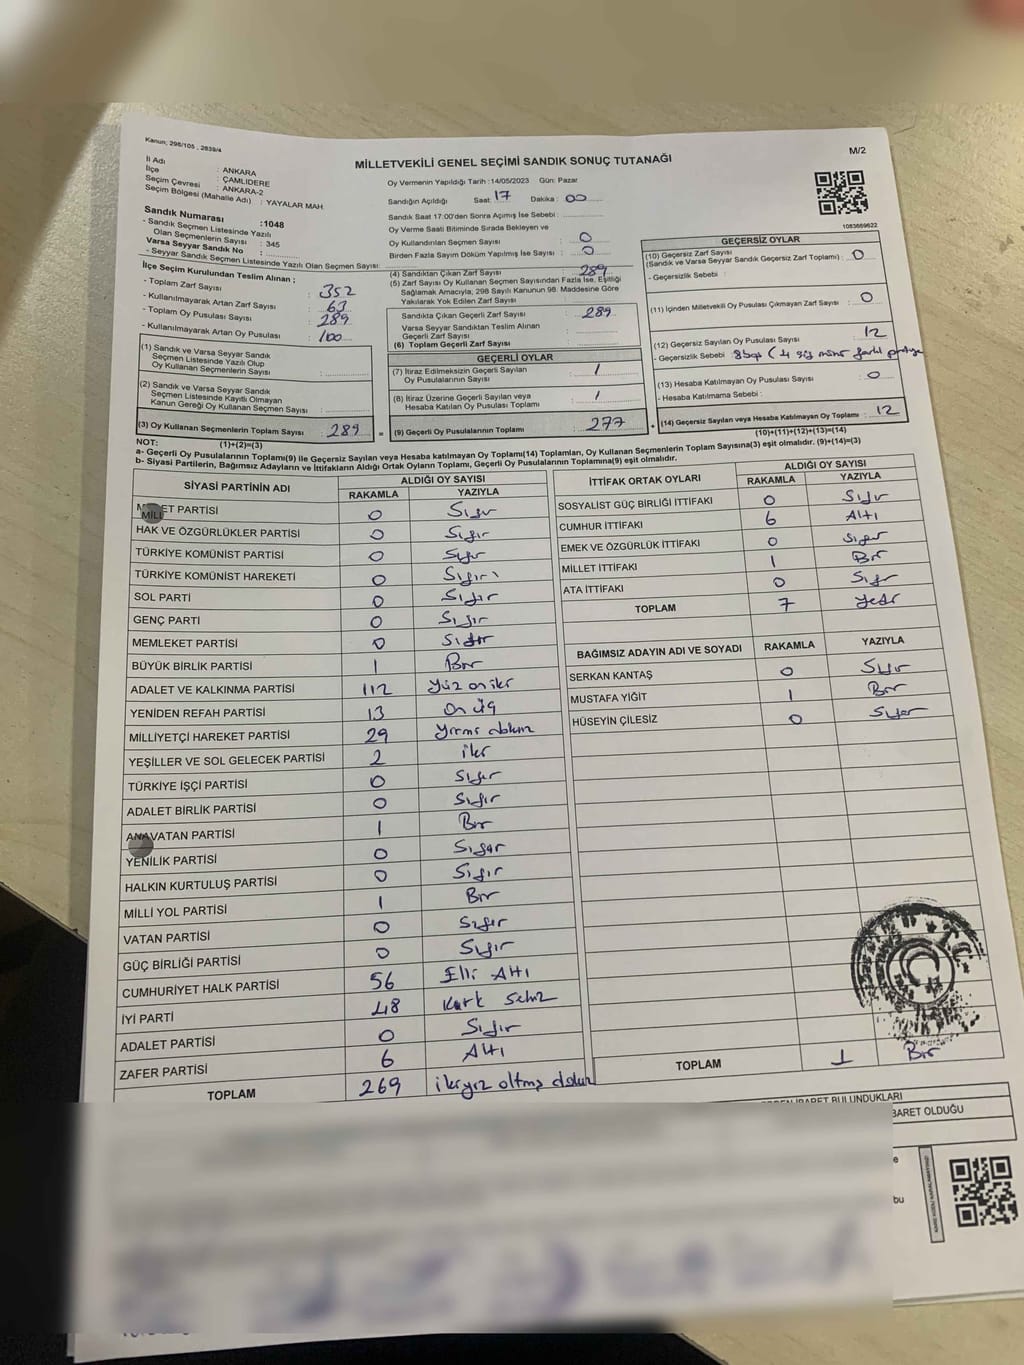 Kanun; 298/105 , 2839/4
M/2
MİLLETVEKİLİ GENEL SEÇİMİ SANDIK SONUÇ TUTANAĞI
İl Adı : ANKARA
İlçe : ÇAMLIDERE
Seçim Çevresi : ANKARA-2
Seçim Bölgesi (Mahalle Adı) : YAYALAR MAH.
Sandık Numarası :1048
- Sandık Seçmen Listesinde Yazılı
Olan Seçmenlerin Sayısı : 345
Varsa Seyyar Sandık No :
- Seyyar Sandık Seçmen Listesinde Yazılı Olan Seçmen Sayısı:
İlçe Seçim Kurulundan Teslim Alınan ;
- Toplam Zarf Sayısı : 352
- Kullanılmayarak Artan Zarf Sayısı : 63
- Toplam Oy Pusulası Sayısı : 289
- Kullanılmayarak Artan Oy Pusulası : 100
(1) Sandık ve Varsa Seyyar Sandık
Seçmen Listesinde Yazılı Olup
Oy Kullanan Seçmenlerin Sayısı :
(2) Sandık ve Varsa Seyyar Sandık
Seçmen Listesinde Kayıtlı Olmayan
Kanun Gereği Oy Kullanan Seçmen Sayısı :
(3) Oy Kullanan Seçmenlerin Toplam Sayısı : 289
(1)+(2)=(3)
Oy Vermenin Yapıldığı Tarih :14/05/2023 Gün: Pazar
Sandığın Açıldığı Saat: 17 Dakika : 00
Sandık Saat 17:00'den Sonra Açımış İse Sebebi :
Oy Verme Saati Bitiminde Sırada Bekleyen ve
Oy Kullandırılan Seçmen Sayısı : 0
Birden Fazla Sayım Döküm Yapılmış İse Sayısı : 0
(4) Sandıktan Çıkan Zarf Sayısı : 289
(5) Zarf Sayısı Oy Kullanan Seçmen Sayısından Fazla İse, Eşitliği
Sağlamak Amacıyla; 298 Sayılı Kanunun 98. Maddesine Göre
Yakılarak Yok Edilen Zarf Sayısı
Sandıkta Çıkan Geçerli Zarf Sayısı : 289
Varsa Seyyar Sandıktan Teslim Alınan
Geçerli Zarf Sayısı
(6) Toplam Geçerli Zarf Sayısı
GEÇERLİ OYLAR
(7) İtiraz Edilmeksizin Geçerli Sayılan
Oy Pusulalarının Sayısı : /
(8) İtiraz Üzerine Geçerli Sayılan veya
Hesaba Katılan Oy Pusulası Toplamı : /
= (9) Geçerli Oy Pusulalarının Toplamı : 277
1083669622
GEÇERSİZ OYLAR
(10) Geçersiz Zarf Sayısı
(Sandık ve Varsa Seyyar Sandık Geçersiz Zarf Toplamı) : 0
- Geçersizlik Sebebi :
(11) İçinden Milletvekili Oy Pusulası Çıkmayan Zarf Sayısı : 0
(12) Geçersiz Sayılan Oy Pusulası Sayısı : 12
- Geçersizlik Sebebi : 8
(13) Hesaba Katılmayan Oy Pusulası Sayısı : 0
- Hesaba Katılmama Sebebi :
+ (14) Geçersiz Sayılan veya Hesaba Katılmayan Oy Toplamı : 12
(10)+(11)+(12)+(13)=(14)
NOT:
a- Geçerli Oy Pusulalarının Toplamı(9) ile Geçersiz Sayılan veya Hesaba katılmayan Oy Toplam(14) Toplamları, Oy Kullanan Seçmenlerin Toplam Sayısına(3) eşit olmalıdır. (9)+(14)=(3)
b- Siyasi Partilerin, Bağımsız Adayların ve İttifakların Aldığı Ortak Oyların Toplamı, Geçerli Oy Pusulalarının Toplamına(9) eşit olmalıdır.
SİYASİ PARTİNİN ADI ALDIĞI OY SAYISI
RAKAMLA YAZIYLA
MİLLET PARTİSİ 0 Sıfır
HAK VE ÖZGÜRLÜKLER PARTİSİ 0 Sıfır
TÜRKİYE KOMÜNİST PARTİSİ 0 Sıfır
TÜRKİYE KOMÜNİST HAREKETİ 0 Sıfır
SOL PARTİ 0 Sıfır
GENÇ PARTİ 0 Sıfır
MEMLEKET PARTİSİ 0 Sıfır
BÜYÜK BİRLİK PARTİSİ 1 Bir
ADALET VE KALKINMA PARTİSİ 112 yüz on iki
YENİDEN REFAH PARTİSİ 13 On üç
MİLLİYETÇİ HAREKET PARTİSİ 29 yirmi dokuz
YEŞİLLER VE SOL GELECEK PARTİSİ 2 iki
TÜRKİYE İŞÇİ PARTİSİ 0 Sıfır
ADALET BİRLİK PARTİSİ 0 Sıfır
ANAVATAN PARTİSİ 1 Bir
YENİLİK PARTİSİ 0 Sıfır
HALKIN KURTULUŞ PARTİSİ 0 Sıfır
MİLLİ YOL PARTİSİ 1 Bir
VATAN PARTİSİ 0 Sıfır
GÜÇ BİRLİĞİ PARTİSİ 0 Sıfır
CUMHURİYET HALK PARTİSİ 56 Elli Altı
İYİ PARTİ 48 Kırk Sekiz
ADALET PARTİSİ 0 Sıfır
ZAFER PARTİSİ 6 Altı
TOPLAM 269 iki yüz altmış dokuz
İTTİFAK ORTAK OYLARI ALDIĞI OY SAYISI
RAKAMLA YAZIYLA
SOSYALİST GÜÇ BİRLİĞİ İTTİFAKI 0 Sıfır
CUMHUR İTTİFAKI 6 Altı
EMEK VE ÖZGÜRLÜK İTTİFAKI 0 Sıfır
MİLLET İTTİFAKI 1 Bir
ATA İTTİFAKI 0 Sıfır
TOPLAM 7 yedi
BAĞIMSIZ ADAYIN ADI VE SOYADI RAKAMLA YAZIYLA
SERKAN KANTAŞ 0 Sıfır
MUSTAFA YİĞİT 1 Bir
HÜSEYİN ÇİLESİZ 0 Sıfır
T.C.
TOPLAM 1 Bir
İBARET BULUNDUKLARI
BARET OLDUĞU
bu